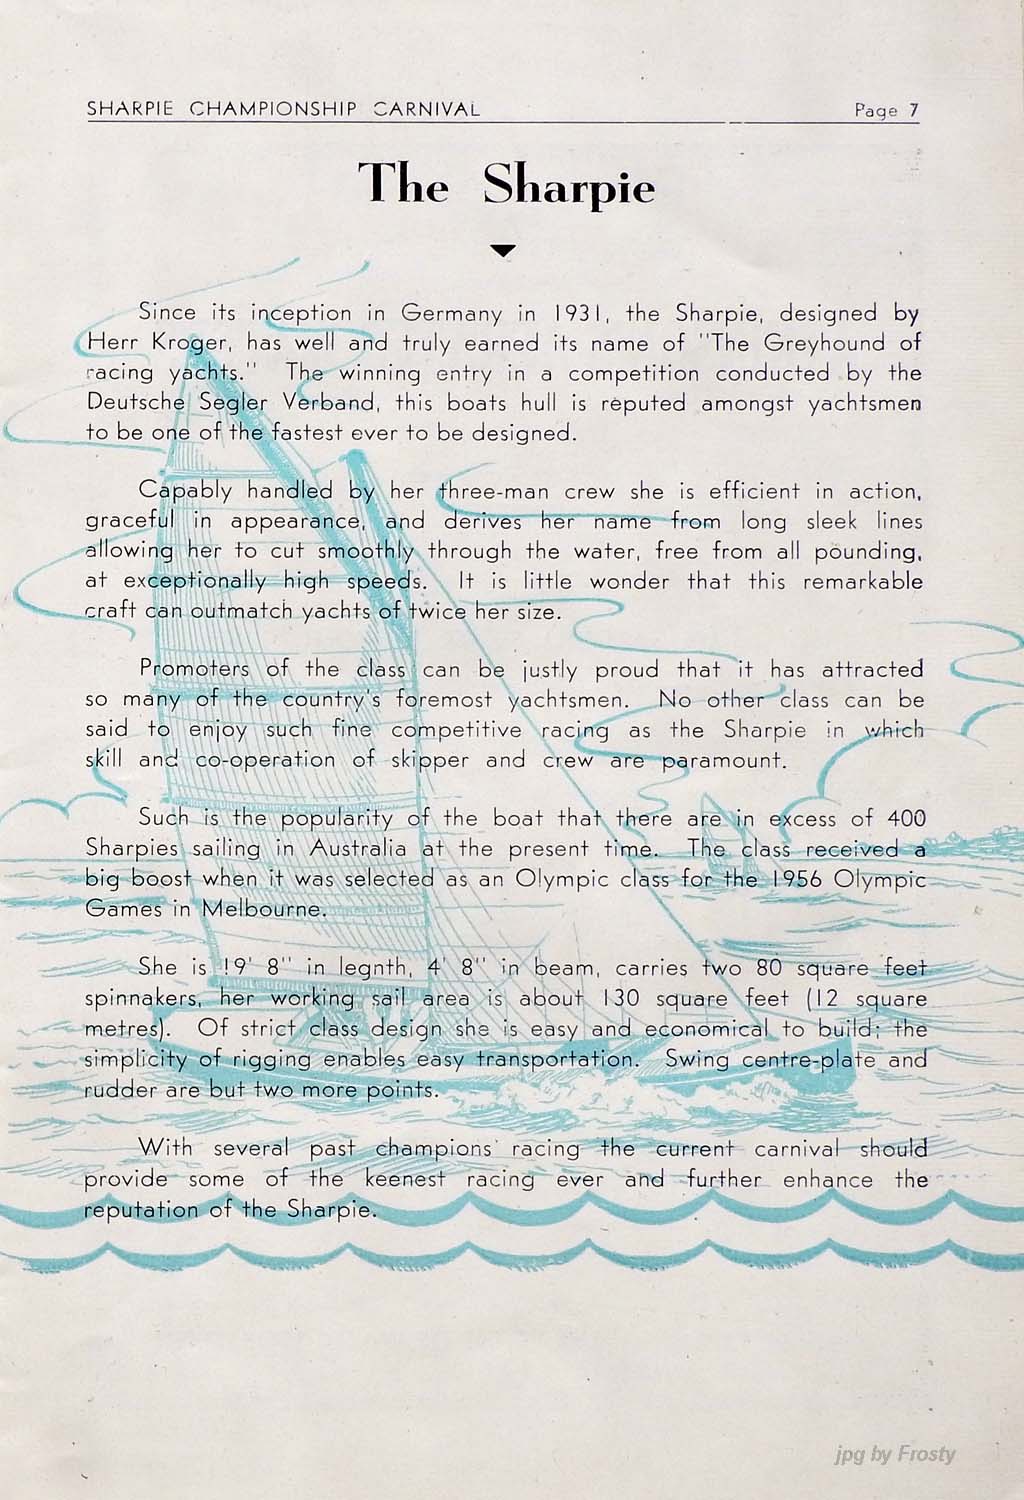 SHARPIE CHAMPIONSHIP CARNIVAL Page 7
The Sharpie
Since its inception in Germany in 1931, the Sharpie, designed by
Herr Kroger, has well and truly earned its name of "The Greyhound of
racing yachts." The winning entry in a competition conducted by the
Deutsche Segler Verband, this boats hull is reputed amongst yachtsmen
to be one of the fastest ever to be designed.
Capably handled by her three-man crew she is efficient in action,
graceful in appearance, and derives her name from long sleek lines
allowing her to cut smoothly through the water, free from all pounding,
at exceptionally high speeds. It is little wonder that this remarkable
craft can outmatch yachts of twice her size.
Promoters of the class can be justly proud that it has attracted
so many of the country's foremost yachtsmen. No other class can be
said to enjoy such fine competitive racing as the Sharpie in which
skill and co-operation of skipper and crew are paramount.
Such is the popularity of the boat that there are in excess of 400
Sharpies sailing in Australia at the present time. The class received a
big boost when it was selected as an Olympic class for the 1956 Olympic
Games in Melbourne.
She is 19' 8" in legnth, 4' 8" in beam, carries two 80 square feet
spinnakers, her working sail area is about 130 square feet (12 square
metres). Of strict class design she is easy and economical to build; the
simplicity of rigging enables easy transportation. Swing centre-plate and
rudder are but two more points.
With several past champions' racing the current carnival should
provide some of the keenest racing ever and further enhance the
reputation of the Sharpie.
jpg by Frosty